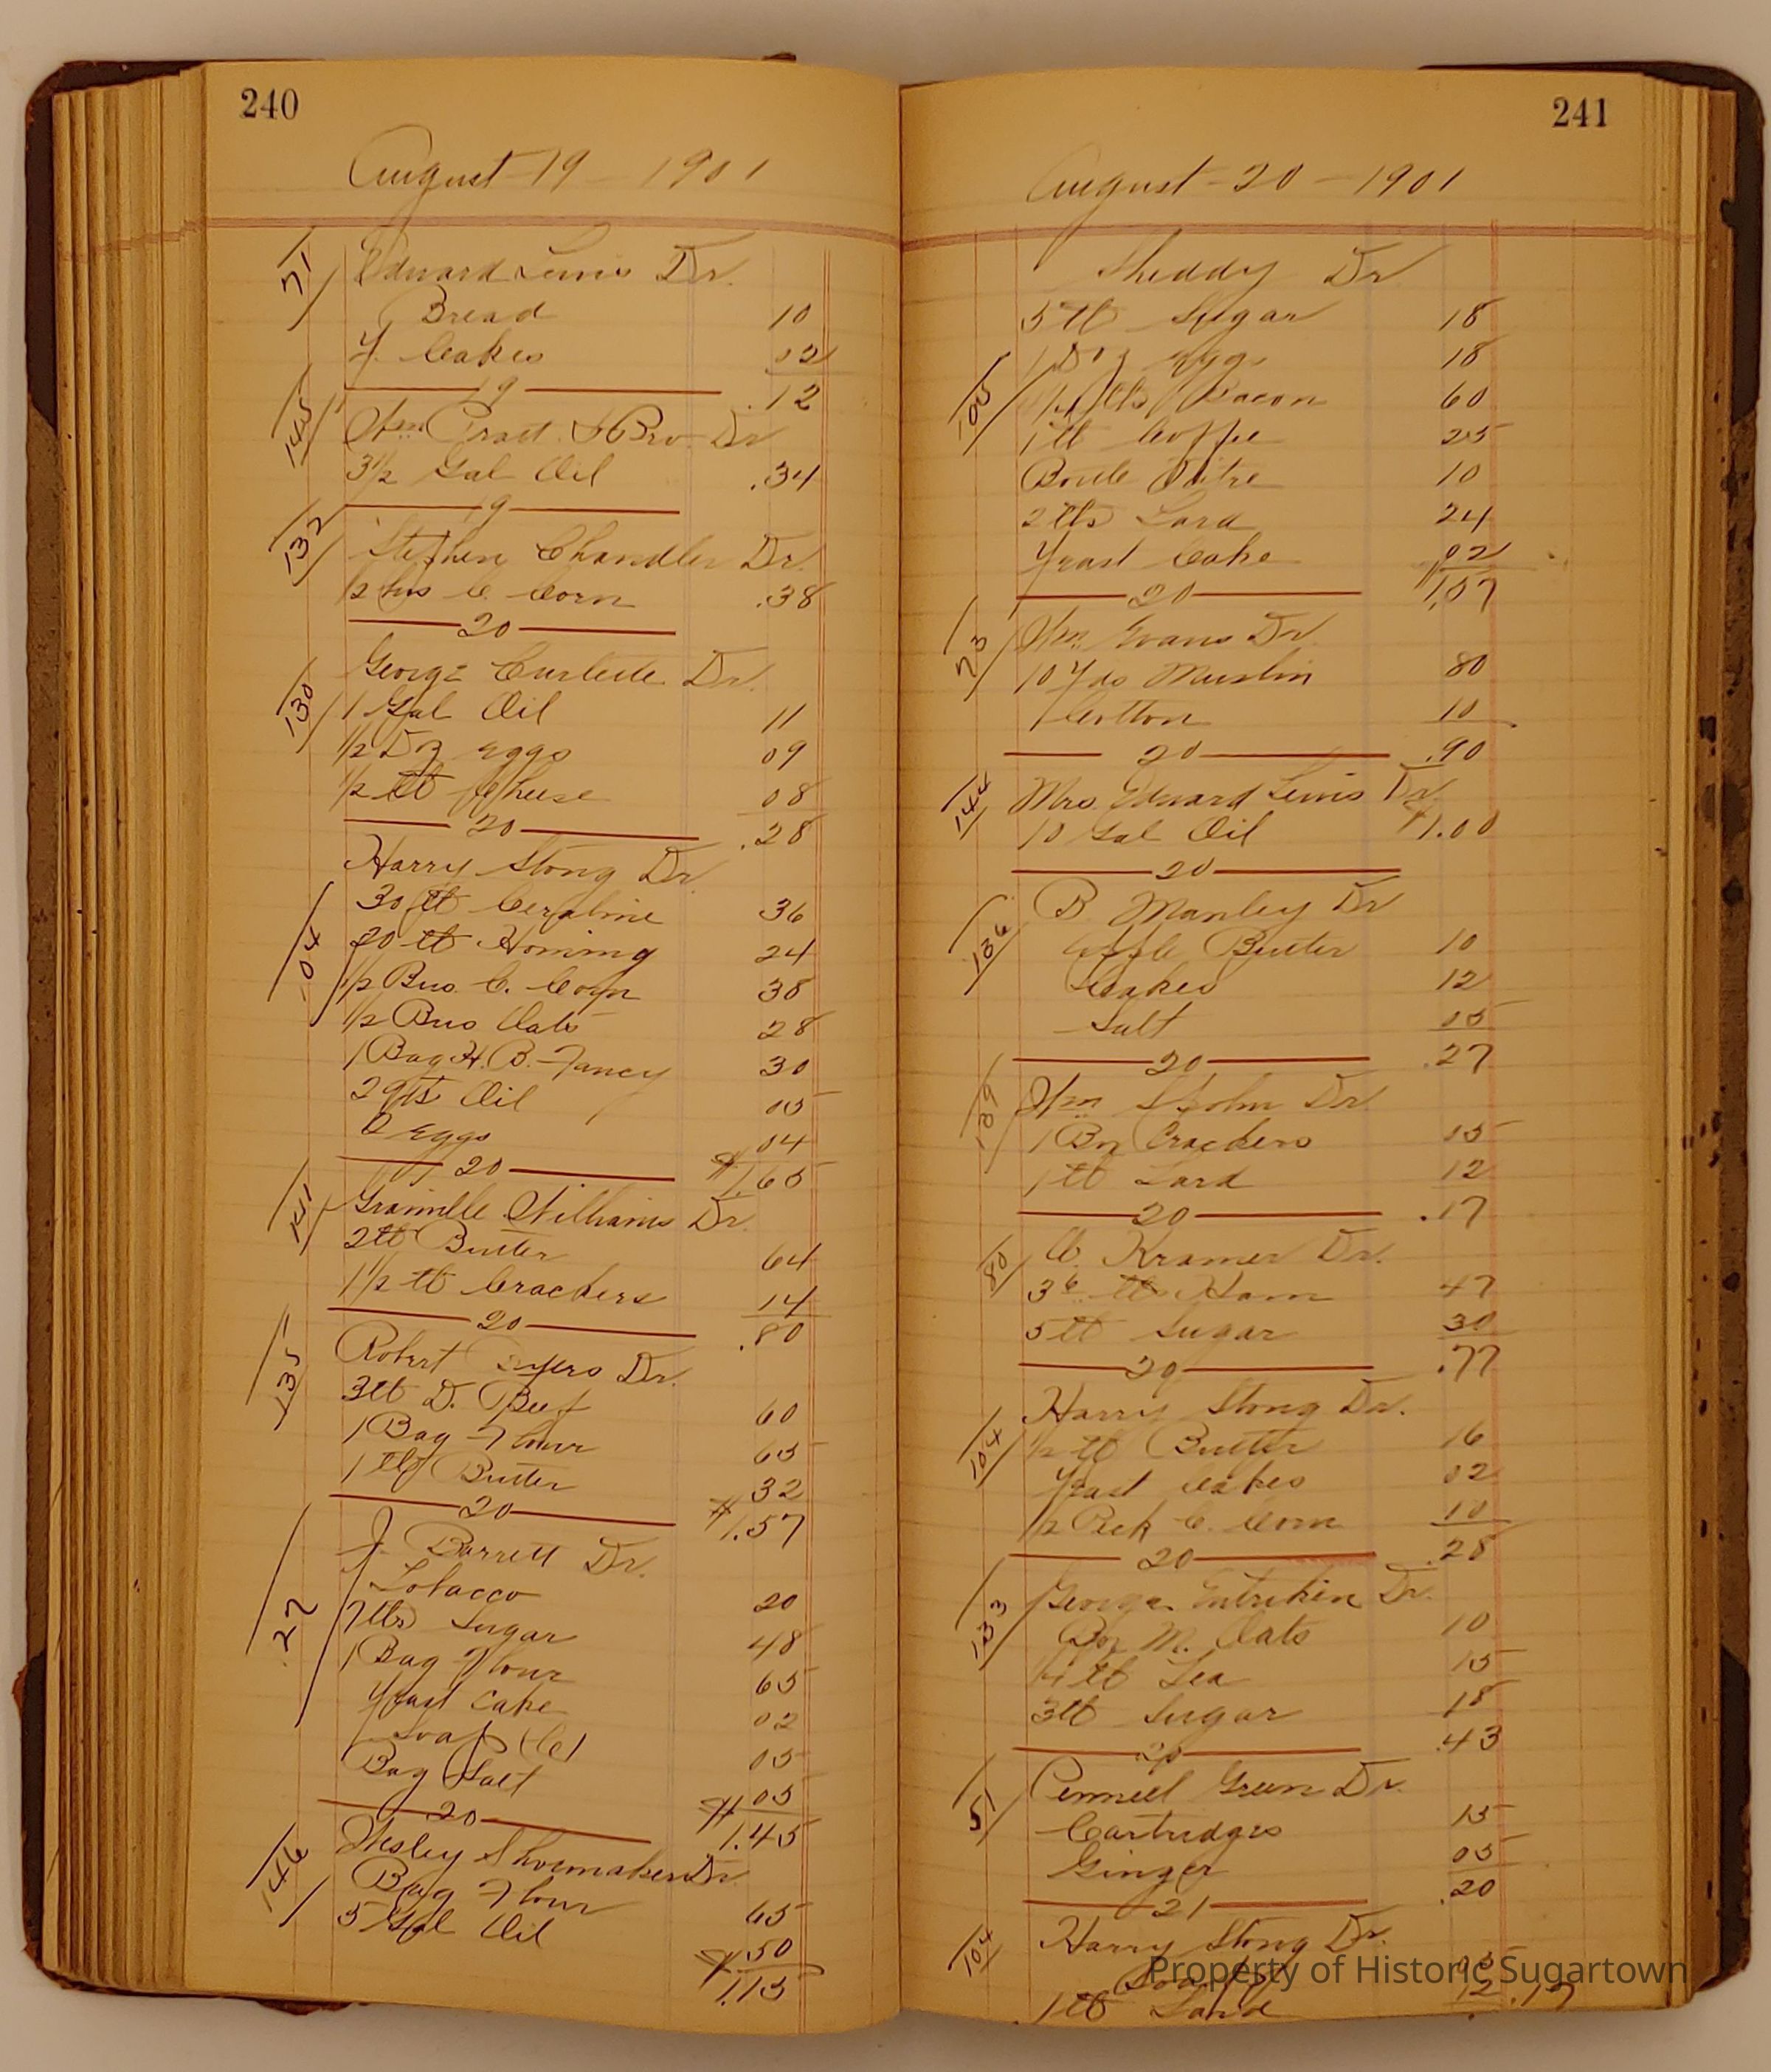 240
August 19 - 1901
71 Edward Lewis Dr.
Bread 10
Y. Cakes 02
19 .12
145 Wm Pratt & Bro. Dr
3 1/2 Gal Oil .34
19
132 Stephen Chandler Dr.
1/2 Bus C. Corn .38
20
130 George Dr.
1 Gal Oil 11
1/2 Doz Eggs 09
1/2 lb Cheese 08
20 .28
Harry Stong Dr.
104
30 lb Ceraline 36
20 lb Hominy 24
1/2 Bus. C. Corn 38
1/2 Bus Oats 28
1 Bag H. B. Fancy 30
2 qts Oil 05
2 Eggs 04
20 $1.65
141 Granville Williams Dr.
2 lb Butter 64
1 1/2 lb Crackers 14
20 .80
135 Robert Dr.
3 lb D. Beef 60
1 Bag Flour 65
1 lb Butter 32
20 $1.57
J. Barrett Dr.
Tobacco 20
27 7 lbs Sugar 48
1 Bag Flour 65
Yeast Cake 02
Soap (C) 05
Bag Salt 05
20 $1.45
146 Wesley Shoemaker Dr.
Bag Flour 65
5 Gal Oil 50
$1.15
241
August - 20 - 1901
Sheddy Dr
5 lb Sugar 18
1 Doz Eggs 18
105 lbs Bacon 60
1 lb Coffee 25
Bottle Nitre 10
2 lbs Lard 24
Yeast Cake 02
20 $1.57
73 Wm. Evans Dr.
10 Yds Muslin 80
Cotton 10
20 .90
144 Mrs. Edward Lewis Dr.
10 Gal Oil $1.00
20
136 B. Manley Dr
Apple Butter 10
Cakes 12
Salt 05
20 .27
139 Wm Dr
1 Bx Crackers 05
1 lb Lard 12
20 .17
80 C. Kramer Dr.
3 6 lbs Ham 47
5 lb Sugar 30
20 .77
Harry Stong Dr.
104 1/2 lb Butter 16
Yeast Cakes 02
1/2 Peck C. Corn 10
20 .28
133 George Entrikin Dr.
Box M. Oats 10
1/4 lb Tea 15
3 lb Sugar 18
20 .43
51 Pennell Green Dr.
Cartridges 15
Ginger 05
21 .20
104 Harry Stong Dr.
05
1 lb Lard 12 .17
Property of Historic Sugartown